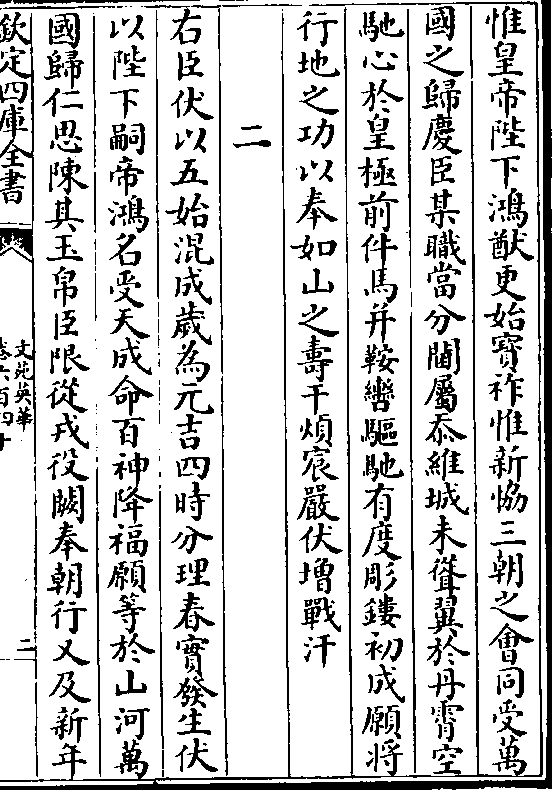 惟皇帝陛下鴻猷更始寶祚惟新恊三朝之會同受萬
國之歸慶臣某職當分閫屬忝維城未聳翼於丹霄空
馳心於皇極前件馬并鞍轡驅馳有度彫鏤初成願將
行地之功以奉如山之壽干煩宸嚴伏增戰汗
二
右臣伏以五始混成歲為元吉四時分理春實發生伏
以陛下嗣帝鴻名受天成命百神降福願等於山河萬
國歸仁思陳其玉帛臣限從戎役闕奉朝行又及新年
欽定四庫全書
文苑英華
卷六百四十
二